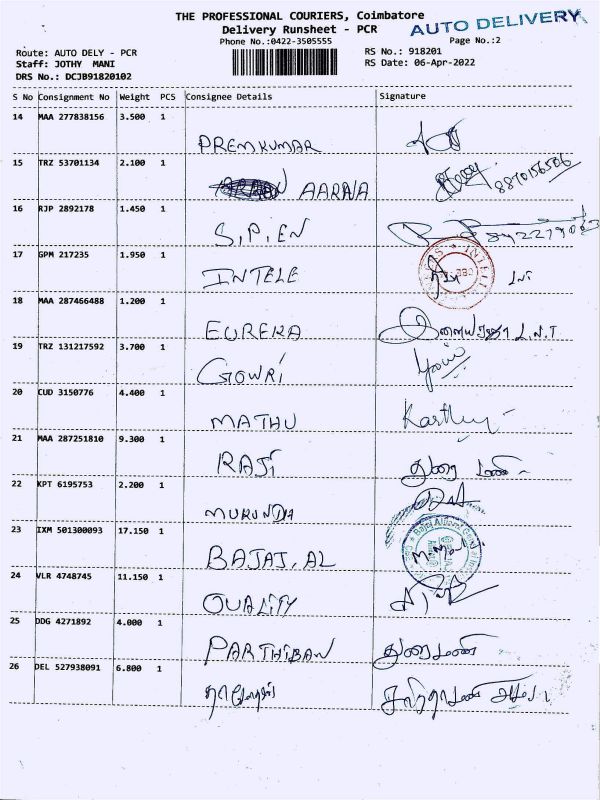 THE PROFESSIONAL COURIERS, Coimbatore
AUTO DELIVERY
Delivery Runsheet - PCR
Phone No.:0422-3505555
Page No.:2
Route: AUTO DELY - PCR
RS No.: 918201
Staff: JOTHY MANI
RS Date: 06-Apr-2022
DRS No.: DCJB91820102
S No Consignment No Weight PCS Consignee Details Signature
14 MAA 277838156 3.500 1
PREMKUMAR
15 TRZ 53701134 2.100 1
AARNA 8870156506
16 RJP 2892178 1.450 1
S.P.EN
17 GPM 217235 1.950 1
INTELE
18 MAA 287466488 1.200 1
EUREKA
19 TRZ 131217592 3.700 1
GOWRI
20 CUD 3150776 4.400 1
MATHU
21 MAA 287251810 9.300 1
RAJI துரை மணி
22 KPT 6195753 2.200 1
MUKUNDA
23 IXM 501300093 17.150 1
BAJAJ, AL
24 VLR 4748745 11.150 1
QUALITY
25 DDG 4271892 4.000 1
PARTHIBAN துரைமணி
26 DEL 527938091 6.800 1